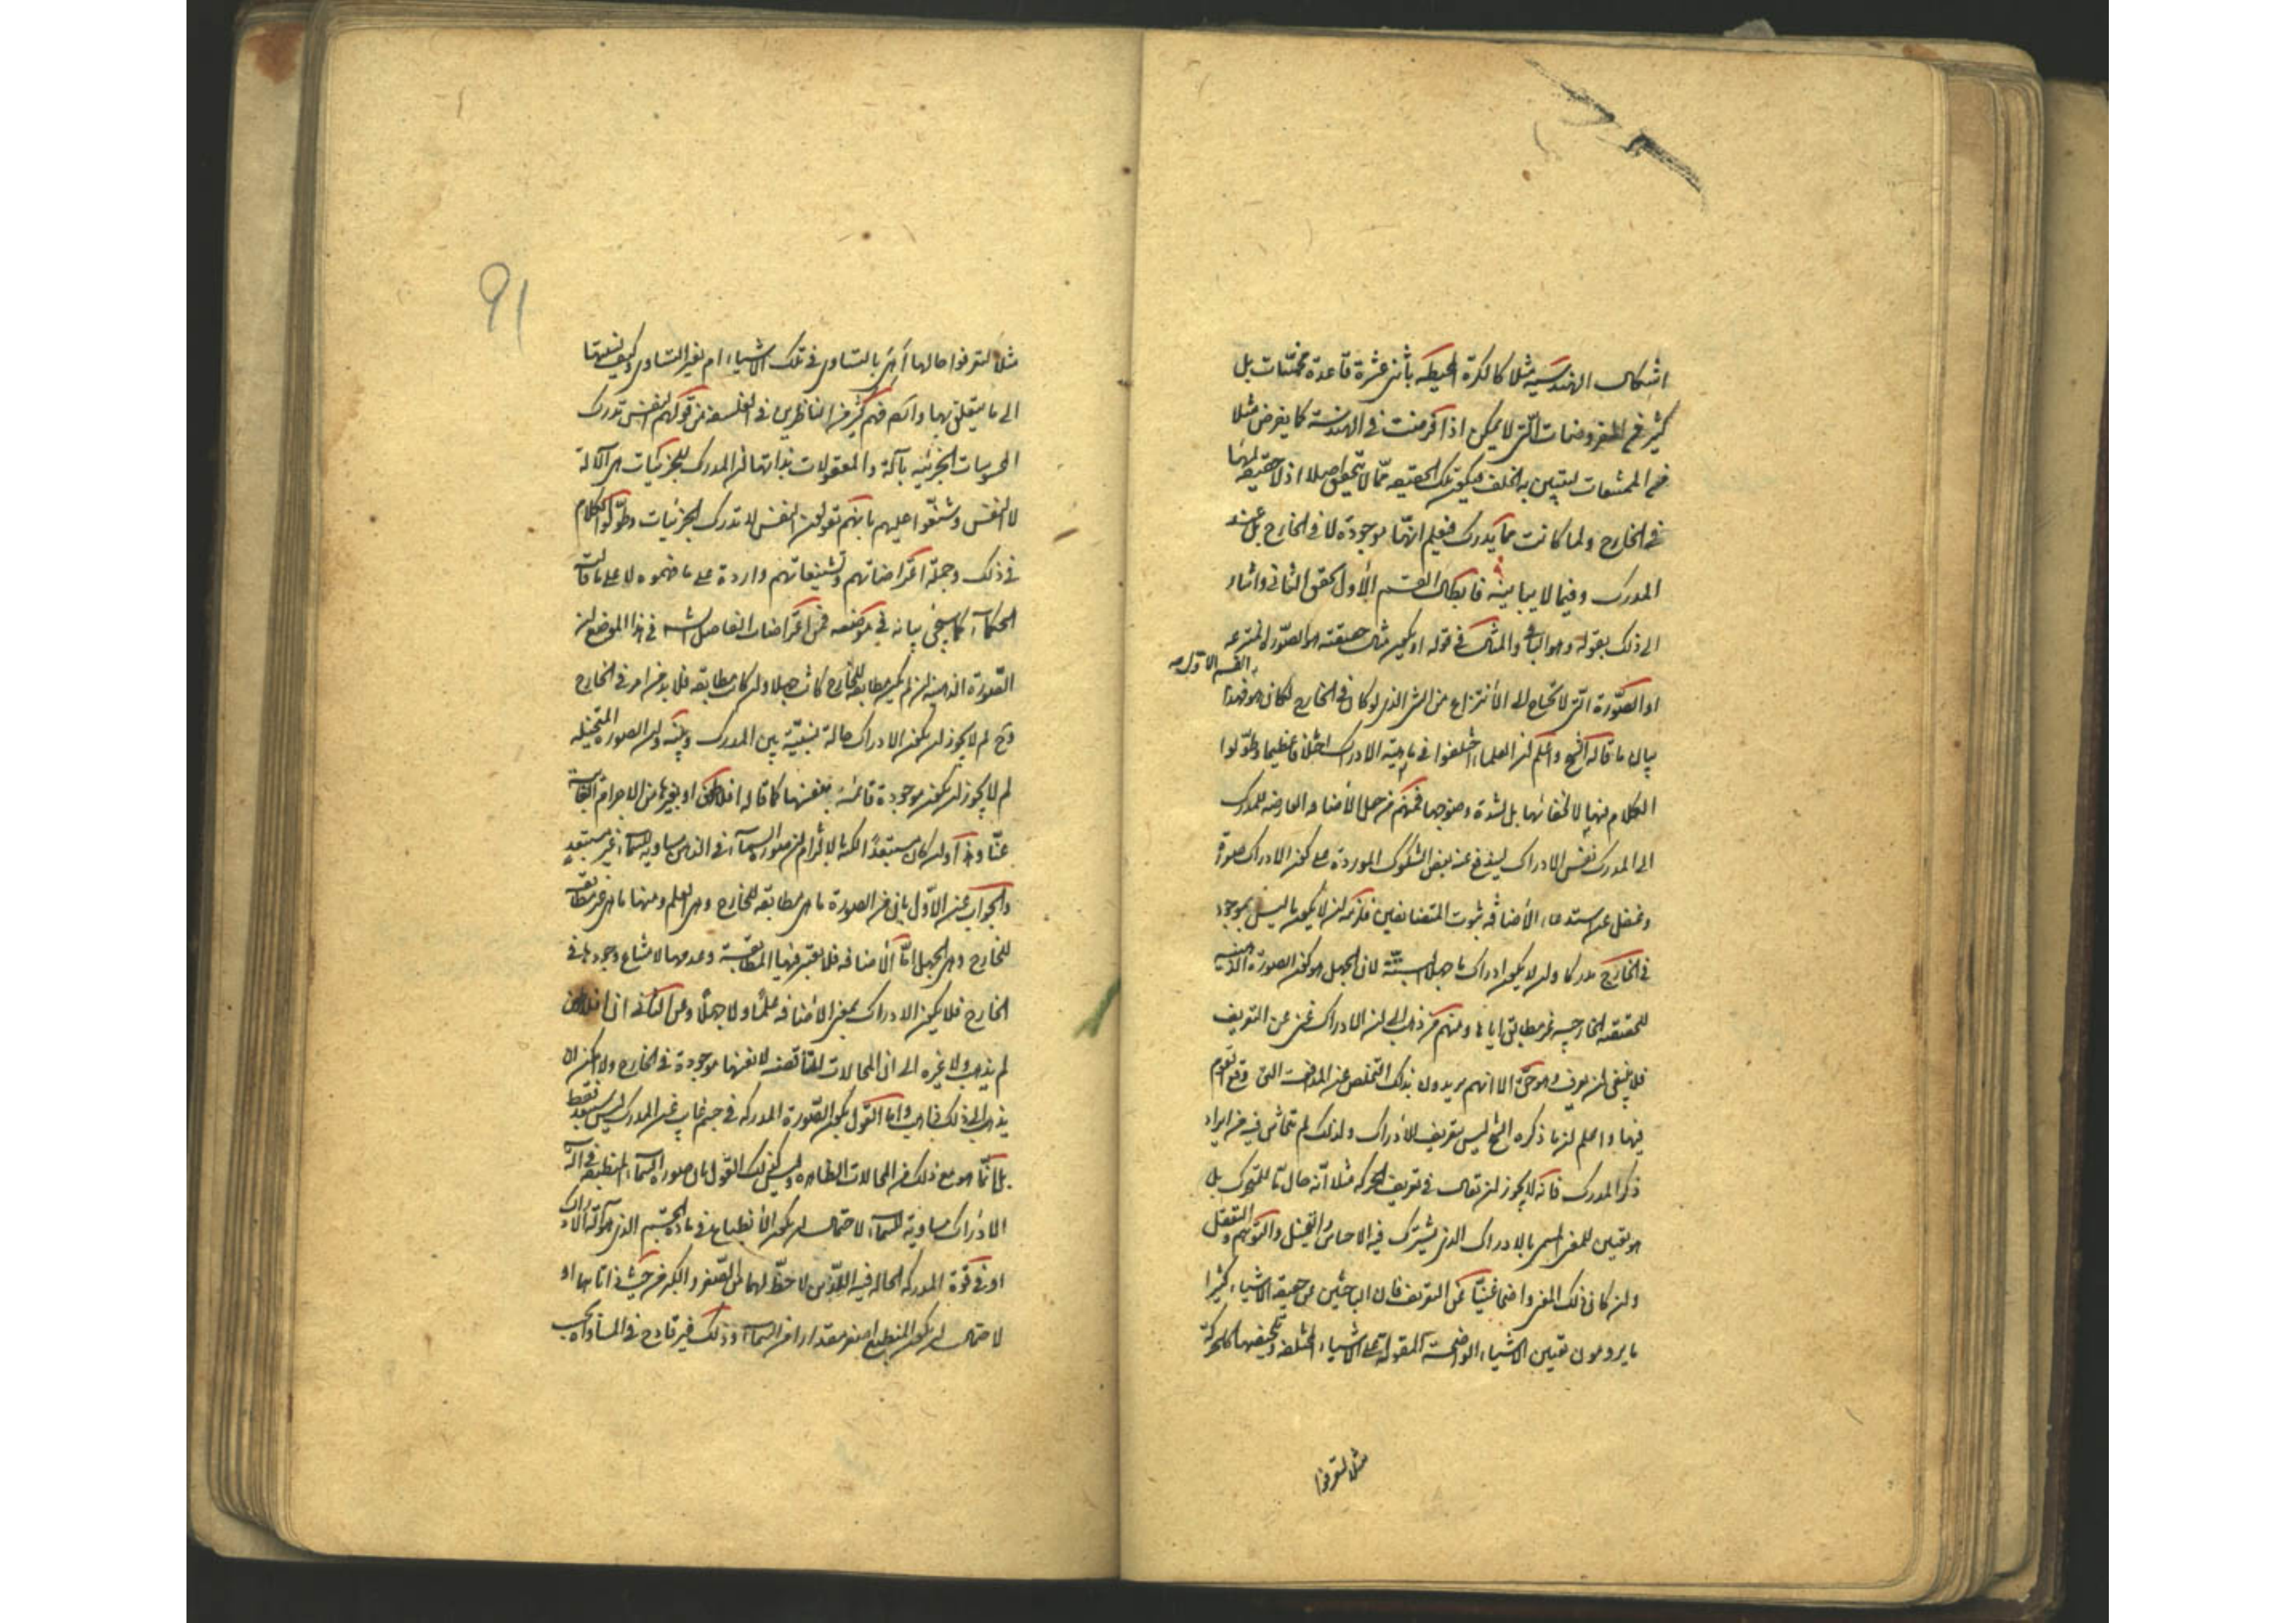 اشكال الهندسية مثلا كالكرة المحيطة باثنى عشرة قاعدة مخمسات بل
كثير من المفروضات التى لا يمكن اذا فرضت فى الهندسة كما يفرض مثلا
من الممتنعات ليتبين به الخلف فيكون تلك الحقيقة مما لا يتحقق اصلا اذ لا حقيقة لها
فى الخارج ولما كانت مما يدرك فيعلم انها موجودة لا فى الخارج بل عند
المدرك وفيما لا يباينه فابطال القسم الأول تحقق الثانى واشار
الى ذلك بقوله وهو الباقى والمثال فى قوله او يكون مثال حقيقته هو الصورة المنتزعة
القسم الاول
او الصورة التى لا تحتاج الى الأنتزاع من الشئ الذى لو كان فى الخارج لكان هو فهذا
بيان ما قاله الشيخ واعلم ان العلماء اختلفوا فى ماهية الادراك اختلافا عظيما وطولوا
الكلام فيها لا لخفائها بل لشدة وضوحها فمنهم من جعل الأضافة العارضة للمدرك
الى المدرك نفس الادراك ليندفع عنه بعض الشكوك الموردة على كون الادراك صورة
وغفل عن استدعاء الأضافة ثبوت المتضايفين فلزمه ان لا يكون ما ليس بموجود
فى الخارج مدركا وان لا يكون ادراك ما جهلا البتة لان الجهل هو كون الصورة الذهنية
للحقيقة الخارجية غير مطابق اياها ومنهم من ذهب الى ان الادراك غنى عن التعريف
فلا ينبغى ان يعرف وهو حق الا انهم يريدون بذلك التخلص عن المضايق التى وقع القوم
فيها واعلم ان ما ذكره الشيخ ليس بتعريف للأدراك ولذلك لم يتحاش فيه من ايراد
ذكر المدرك فانه لا يجوز ان يقال فى تعريف الحركة مثلا انه حال ما للمتحرك بل
هو تعيين للمعنى المسمى بالادراك الذى يشترك فيه الاحساس والتخيل والتوهم والتعقل
وان كان ذلك المعنى واضحا غنيا عن التعريف فان الباحثين عن حقيقة الاشياء كثيرا
ما يرومون تعيين الاشياء الواضحة المقولة على الاشياء المختلفة وتلخيصها كالحركة
مثلا لتعرفوا
91
مثلا لتعرفوا حالها أ هى بالتساوى فى تلك الاشياء ام بغير التساوى وكيف نسبتها
الى ما يتعلق بها وانه فهم كثير من الناظرين فى الفلسفة من قولهم النفس تدرك
المحسوسات الجزئية بآلة والمعقولات بذاتها ان المدرك للجزئيات هى الآلة
لا النفس وشنعوا عليهم بانهم يقولون النفس لا تدرك الجزئيات وطولوا الكلام
فى ذلك وجملة اعتراضاتهم وتشنيعاتهم واردة على ما فهموه لا على ما قالته
الحكماء كما سيجئ بيانه فى موضعه فمن اعتراضات الفاضل الشارح فى هذا الموضع ان
الصورة الذهنية ان لم يكن مطابقة للخارج كانت جهلا وان كانت مطابقة فلا بد من امر فى الخارج
وح لم لا يجوز ان يكون الادراك حالة نسبية بين المدرك وبينه وان الصورة المتخيلة
لم لا يجوز ان يكون موجودة قائمة بنفسها كما قاله افلاطون او بغيرها من الاجرام الغائبة
عنا وهذا وان كان مستبعدا لكنه بالالتزام ان صورة السماء فى الذهن مساوية للسماء غير مستبعد
والجواب عن الأول بان من الصورة ما هى مطابقة للخارج وهى العلم ومنها ما هى غير مطابقة
للخارج وهى الجهل اما الأضافة فلا يعتبر فيها المطابقة وعدمها لامتناع وجودها فى
الخارج فلا يكون الادراك بمعنى الأضافة علما ولا جهلا وعن الثانى ان افلاطون
لم يذهب ولا غيره الى ان المحالات المتناقضة لانفسها موجودة فى الخارج ولا يمكن ان
يذهب الى ذلك ذاهب واما القول بكون الصورة المدركة فى جسم غائب عن المدرك ليس بمستبعد فقط
بل انما هو مع ذلك من المحالات الظاهرة وليس كذلك القول بان صورة السماء المنطبعة فى آلة
الادراك مساوية للسماء لاحتمال ان يكون الأنطباع فى مادة الجسم الذى هو آلة الادراك
او فى قوة المدركة الحالة فيه اللذين لا حظ لهما من الصغر والكبر من حيث ذاتاهما او
لاحتمال ان يكون المنطبع اصغر مقدارا من السماء وذلك غير قادح فى المساواة بحسب